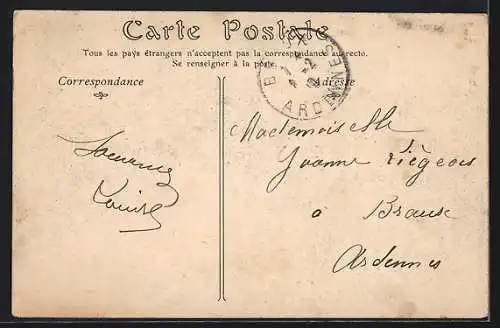 Carte Postale
Tous les pays étrangers n'acceptent pas la correspondance au recto.
Se renseigner à la poste.
Correspondance
Adresse
ARDENNES
Mademoiselle
Jeanne Liégeois
à
Braux
Ardennes
Louise